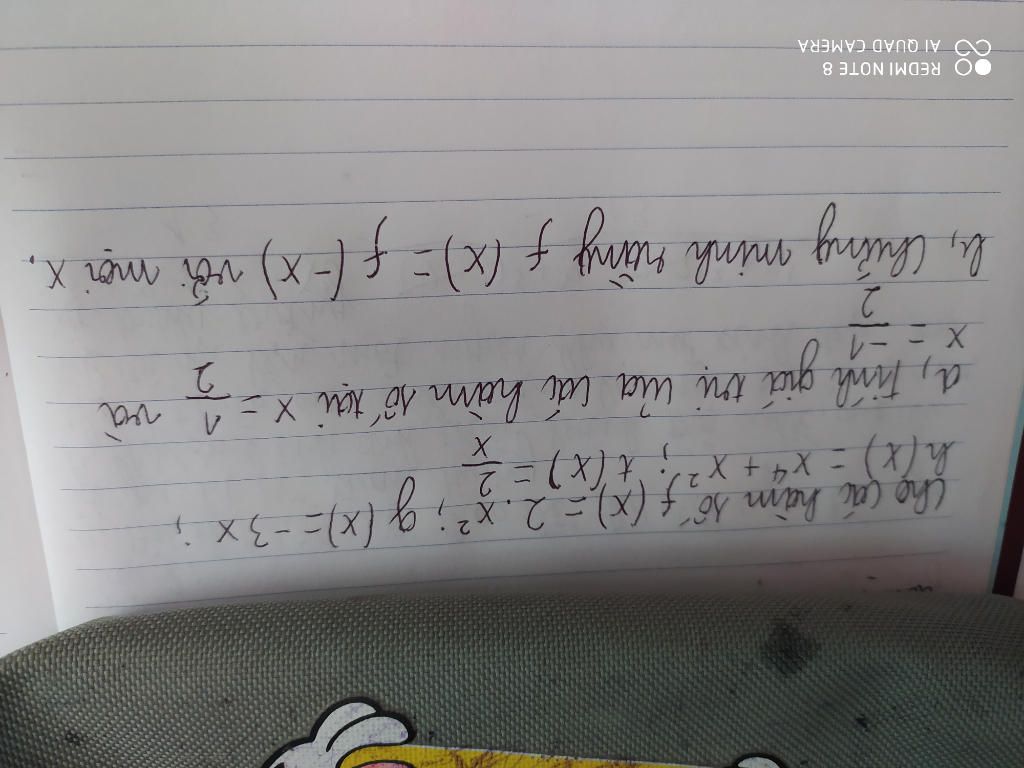 Cho các hàm số f(x) = 2 . x²; g(x) = -3x;
h(x) = x⁴ + x²; t(x) = 2/x
a, Tính giá trị của các hàm số tại x = 1/2 và
x = -1/2
b, Chứng minh rằng f(x) = f(-x) với mọi x.
REDMI NOTE 8
AI QUAD CAMERA